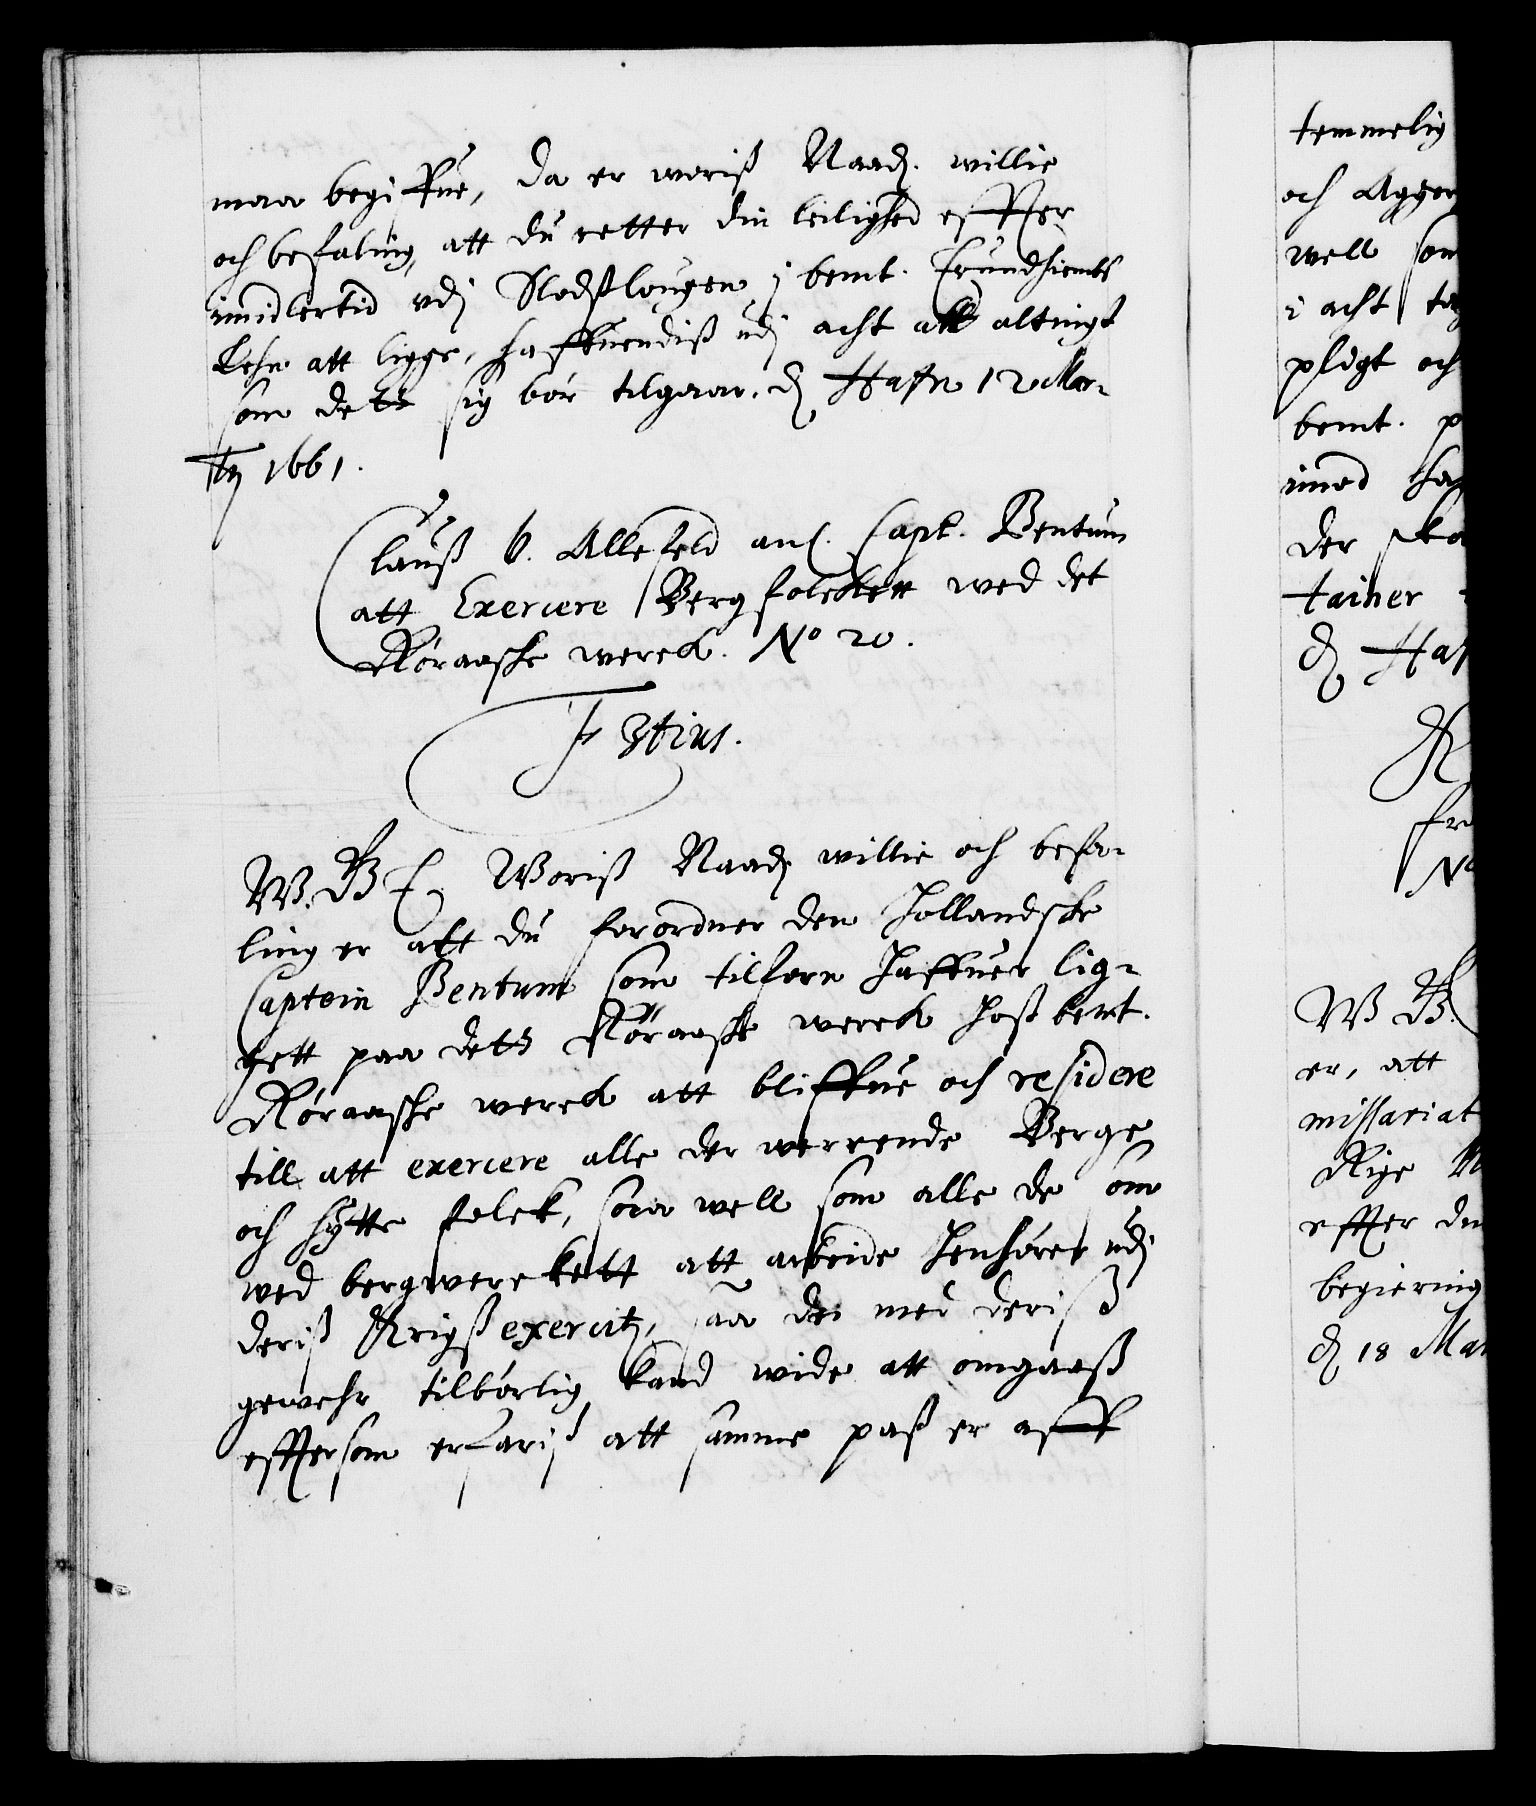 maa begiffue, da er woris Naad. willie
och befaling, att du retter din leilighed effter
imidlertid udj Stadsslougen j bemt. Trundhiembs
Lehn att ligge, haffuendis udj acht att altingt
som dett sig bør tilgaar. D. Hafn 12 Mar-
tij 1661.
Clauss v. Allefeld anl. Capt. Bentum
att Exercere Bergfolckett wed det
Røraaske werck. No 20.
F 3tius.
W. G. T. Woris Naad. willie och befa-
ling er att du forordner den Hollandske
Captein Bentum som tilforn haffuer lig-
gett paa dett Røraaske werck hoss bemt.
Røraaske werck att bliffue och residere
till att exercere alle der werrende Berge
och hytte folck, saa well som alle de som
wed bergwerckett att arbeide henhører udj
deris Krigssexercitz, saa de med deris
gewehr tilbørlig kand wide att omgaaes
efftersom erfaris att samme pass er aff
temmelig
och Agger
well som
i acht tag
pligt och
bemt. p
imod
der ska
tainer
D. Haf
fr
No
W G.
er, att
missariat
Rige
effter den
begiering
D. 18 Mar